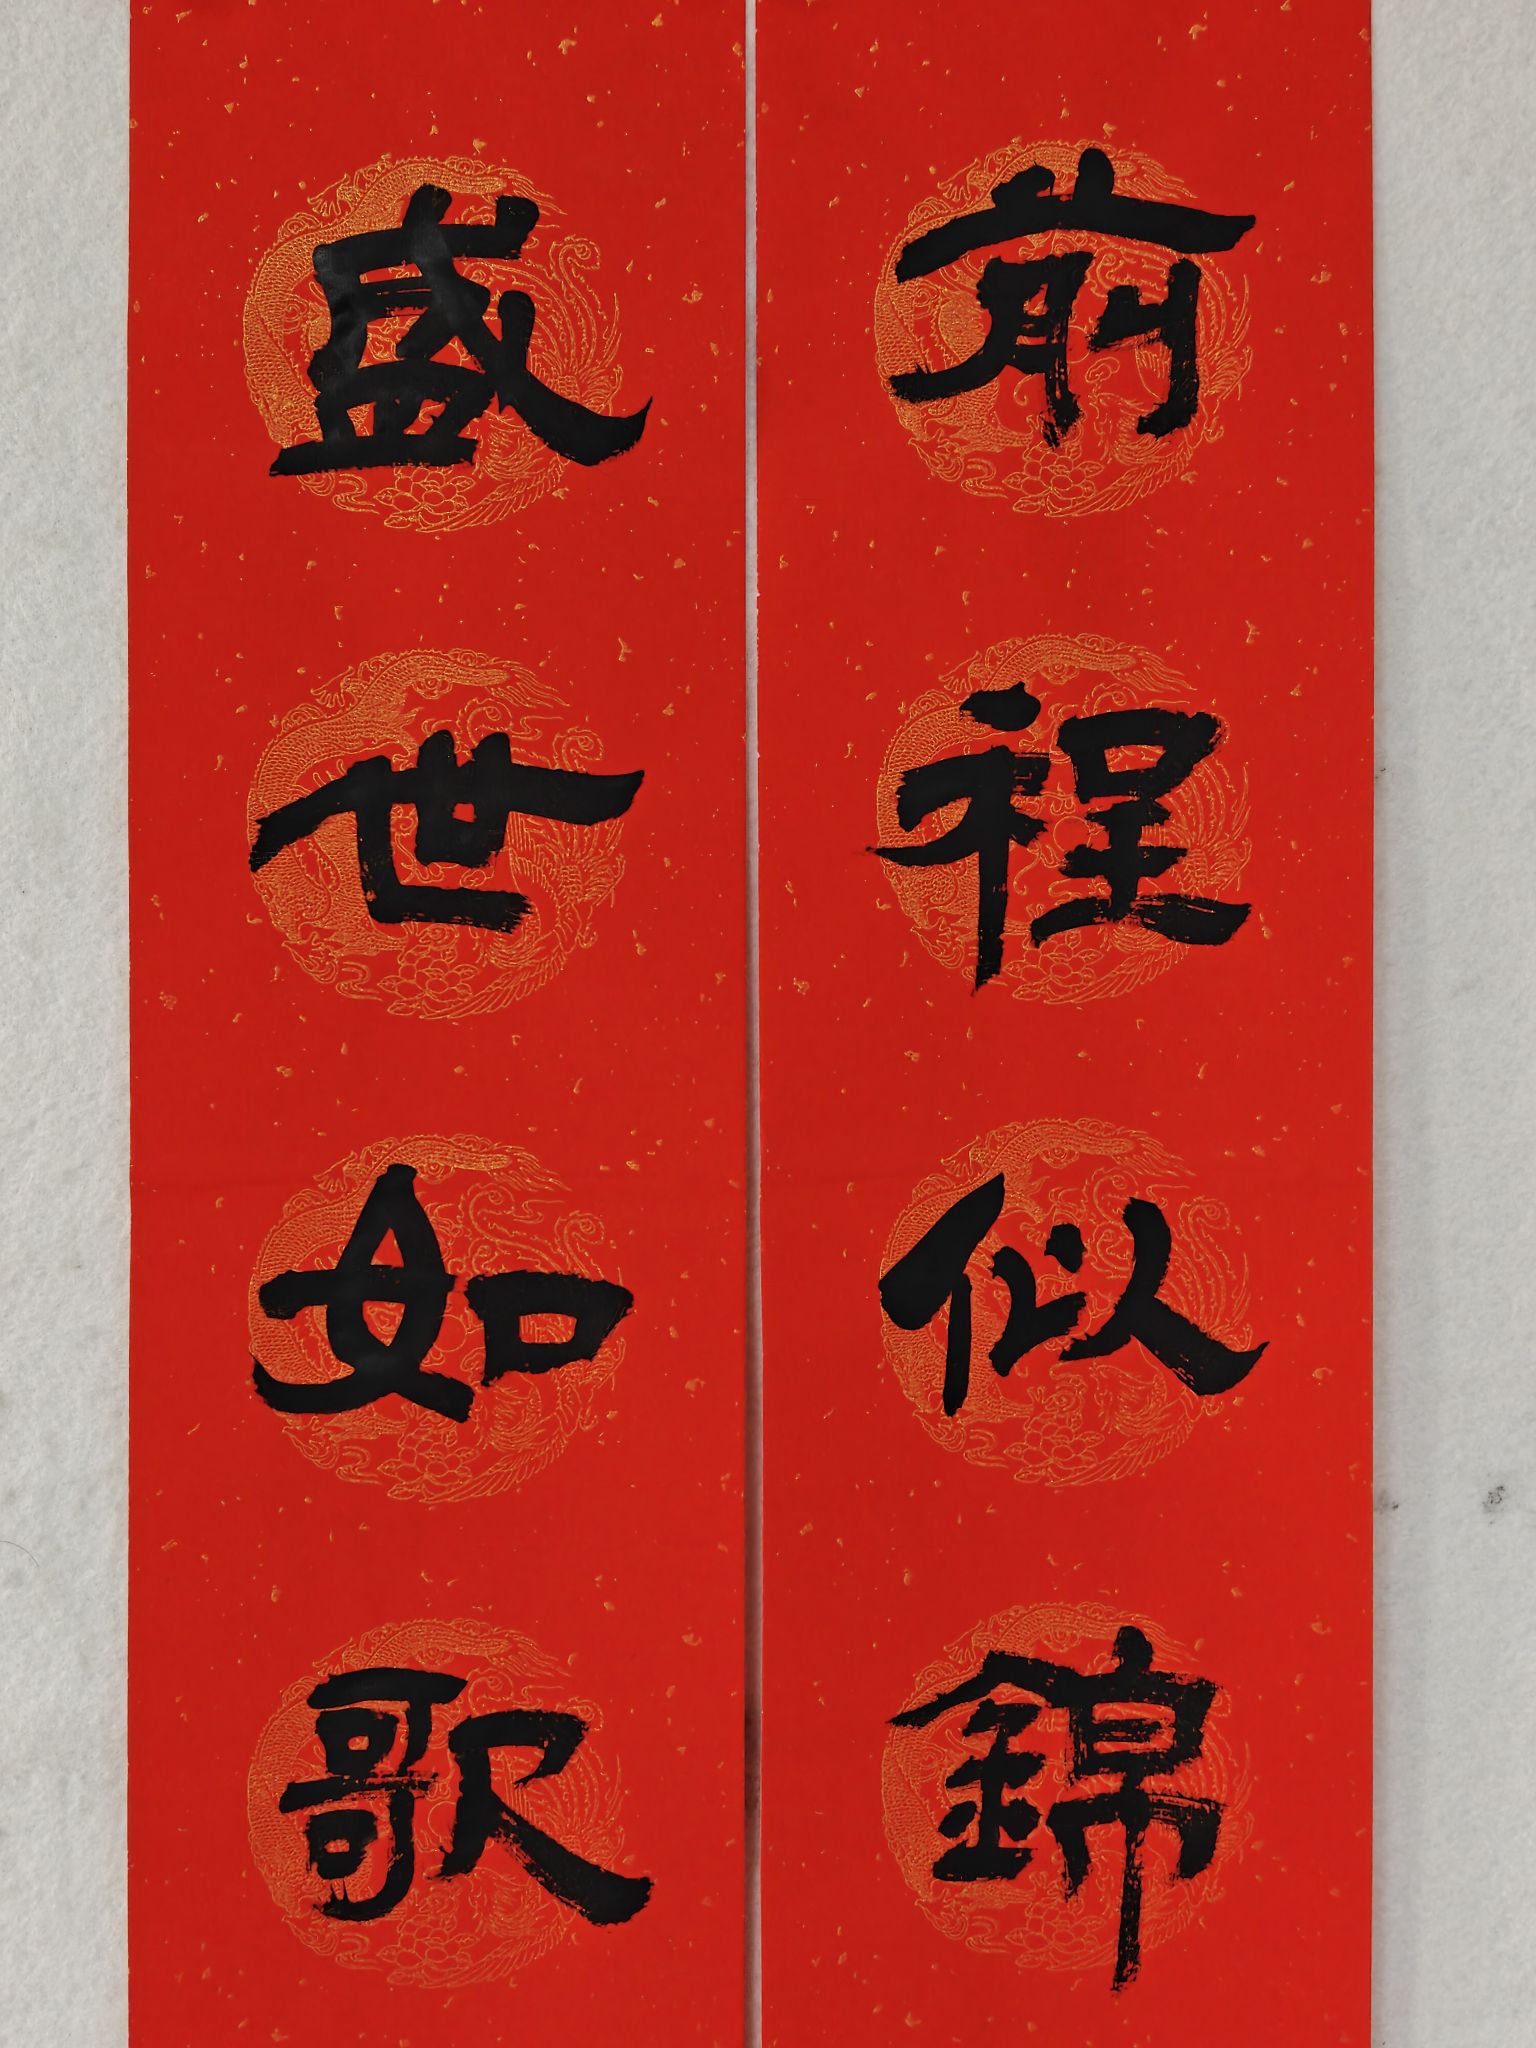 前程似錦
盛世如歌